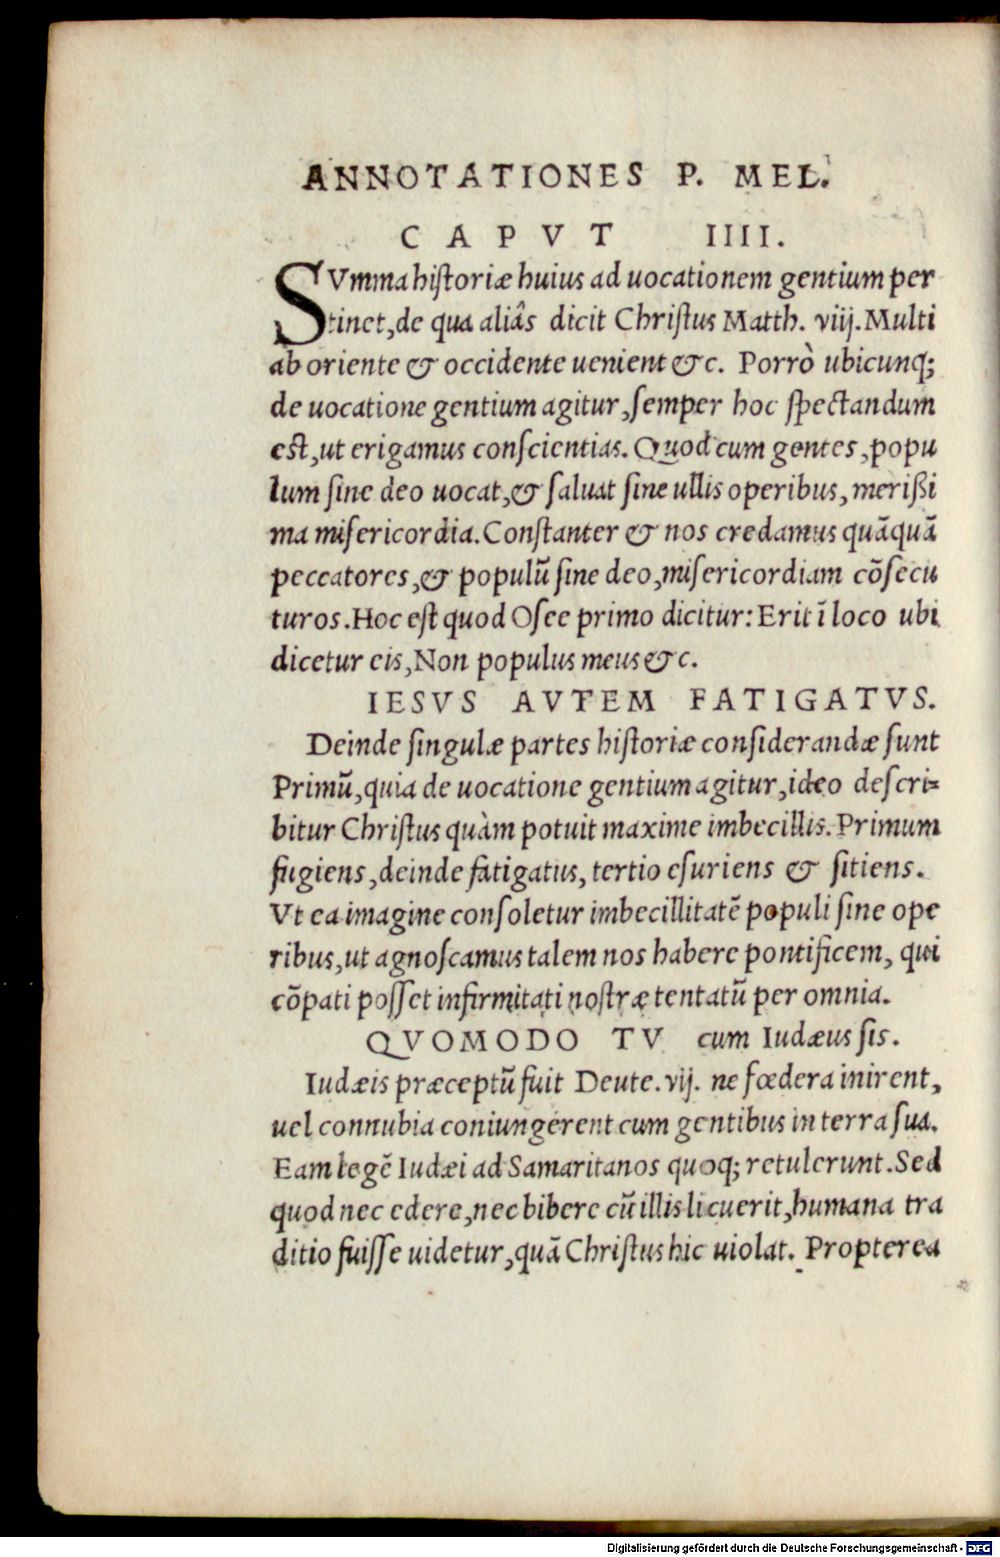 ANNOTATIONES P. MEL.
CAPVT IIII.
SVmma historiæ huius ad uocationem gentium per
tinet, de qua aliâs dicit Christus Matth. viij. Multi
ab oriente & occidente uenient &c. Porrò ubicunq;
de uocatione gentium agitur, semper hoc spectandum
est, ut erigamus conscientias. Quod cum gentes, popu
lum sine deo uocat, & saluat sine ullis operibus, merißi
ma misericordia. Constanter & nos credamus quãquã
peccatores, & populũ sine deo, misericordiam cõsecu
turos. Hoc est quod Osee primo dicitur: Erit ĩ loco ubi
dicetur eis, Non populus meus &c.
IESVS AVTEM FATIGATVS.
Deinde singulæ partes historiæ considerandæ sunt
Primũ, quia de uocatione gentium agitur, ideo descri-
bitur Christus quàm potuit maxime imbecillis. Primum
fugiens, deinde fatigatus, tertio esuriens & sitiens.
Vt ea imagine consoletur imbecillitatẽ populi sine ope
ribus, ut agnoscamus talem nos habere pontificem, qui
cõpati posset infirmitati nostræ tentatũ per omnia.
QVOMODO TV cum Iudæus sis.
Iudæis præceptũ fuit Deute. vij. ne fœdera inirent,
uel connubia coniungerent cum gentibus in terra sua.
Eam legẽ Iudæi ad Samaritanos quoq; retulerunt. Sed
quod nec edere, nec bibere cũ illis licuerit, humana tra
ditio fuisse uidetur, quã Christus hic uiolat. Propterea
Digitalisierung gefördert durch die Deutsche Forschungsgemeinschaft - DFG